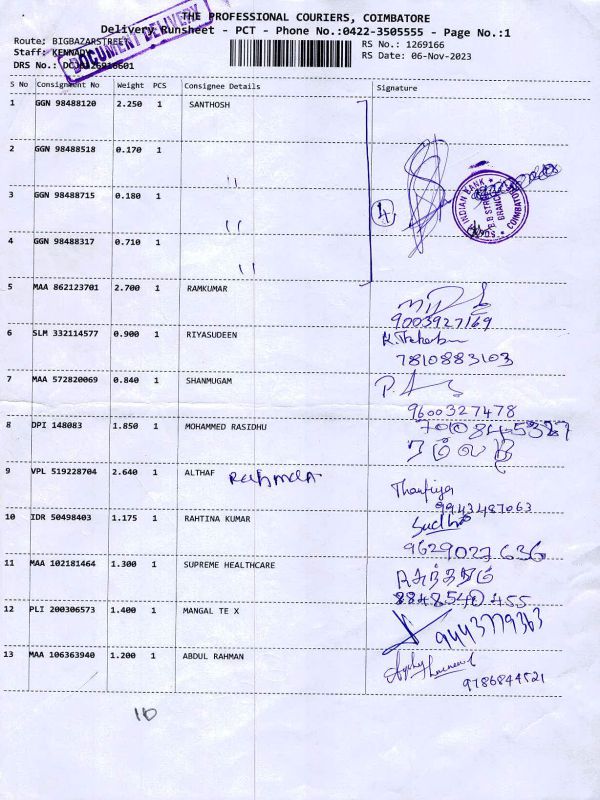 THE PROFESSIONAL COURIERS, COIMBATORE
Delivery Runsheet - PCT - Phone No.:0422-3505555 - Page No.:1
Route: BIGBAZARSTREET
RS No.: 1269166
Staff: KENNADY
RS Date: 06-Nov-2023
DOCUMENT DELIVERY
DRS No.:
S No Consignment No Weight PCS Consignee Details Signature
1 GGN 98488120 2.250 1 SANTHOSH
2 GGN 98488518 0.170 1
"
3 GGN 98488715 0.180 1
"
4
INDIAN BANK
BRANCH
COIMBATORE
4 GGN 98488317 0.710 1
"
5 MAA 862123701 2.700 1 RAMKUMAR
9003927169
6 SLM 332114577 0.900 1 RIYASUDEEN
7810883103
7 MAA 572820069 0.840 1 SHANMUGAM
9600327478
8 DPI 148083 1.850 1 MOHAMMED RASIDHU
9 VPL 519228704 2.640 1 ALTHAF
9943487063
10 IDR 50498403 1.175 1 RAHTINA KUMAR
9629027636
11 MAA 102181464 1.300 1 SUPREME HEALTHCARE
12 PLI 200306573 1.400 1 MANGAL TE X
9443779363
13 MAA 106363940 1.200 1 ABDUL RAHMAN
9786844521
10